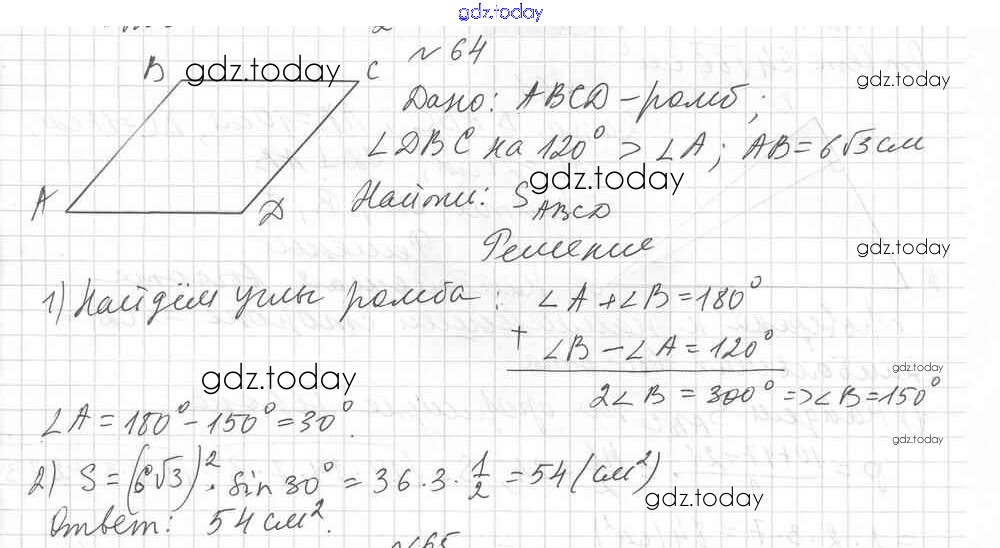 gdz.today
№ 64
B gdz.today C
gdz.today
Дано: ABCD – ромб;
∠DBC на 120° > ∠A; AB = 6√3 см
gdz.today
A D
Найти: S ABCD
Решение
gdz.today
1) Найдём углы ромба: ∠A + ∠B = 180°
+ ∠B – ∠A = 120°
gdz.today
gdz.today
2∠B = 300° => ∠B = 150°
∠A = 180° – 150° = 30°.
gdz.today
2) S = (6√3)² · sin 30° = 36 · 3 · 1/2 = 54 (см²)
gdz.today
Ответ: 54 см².
№65